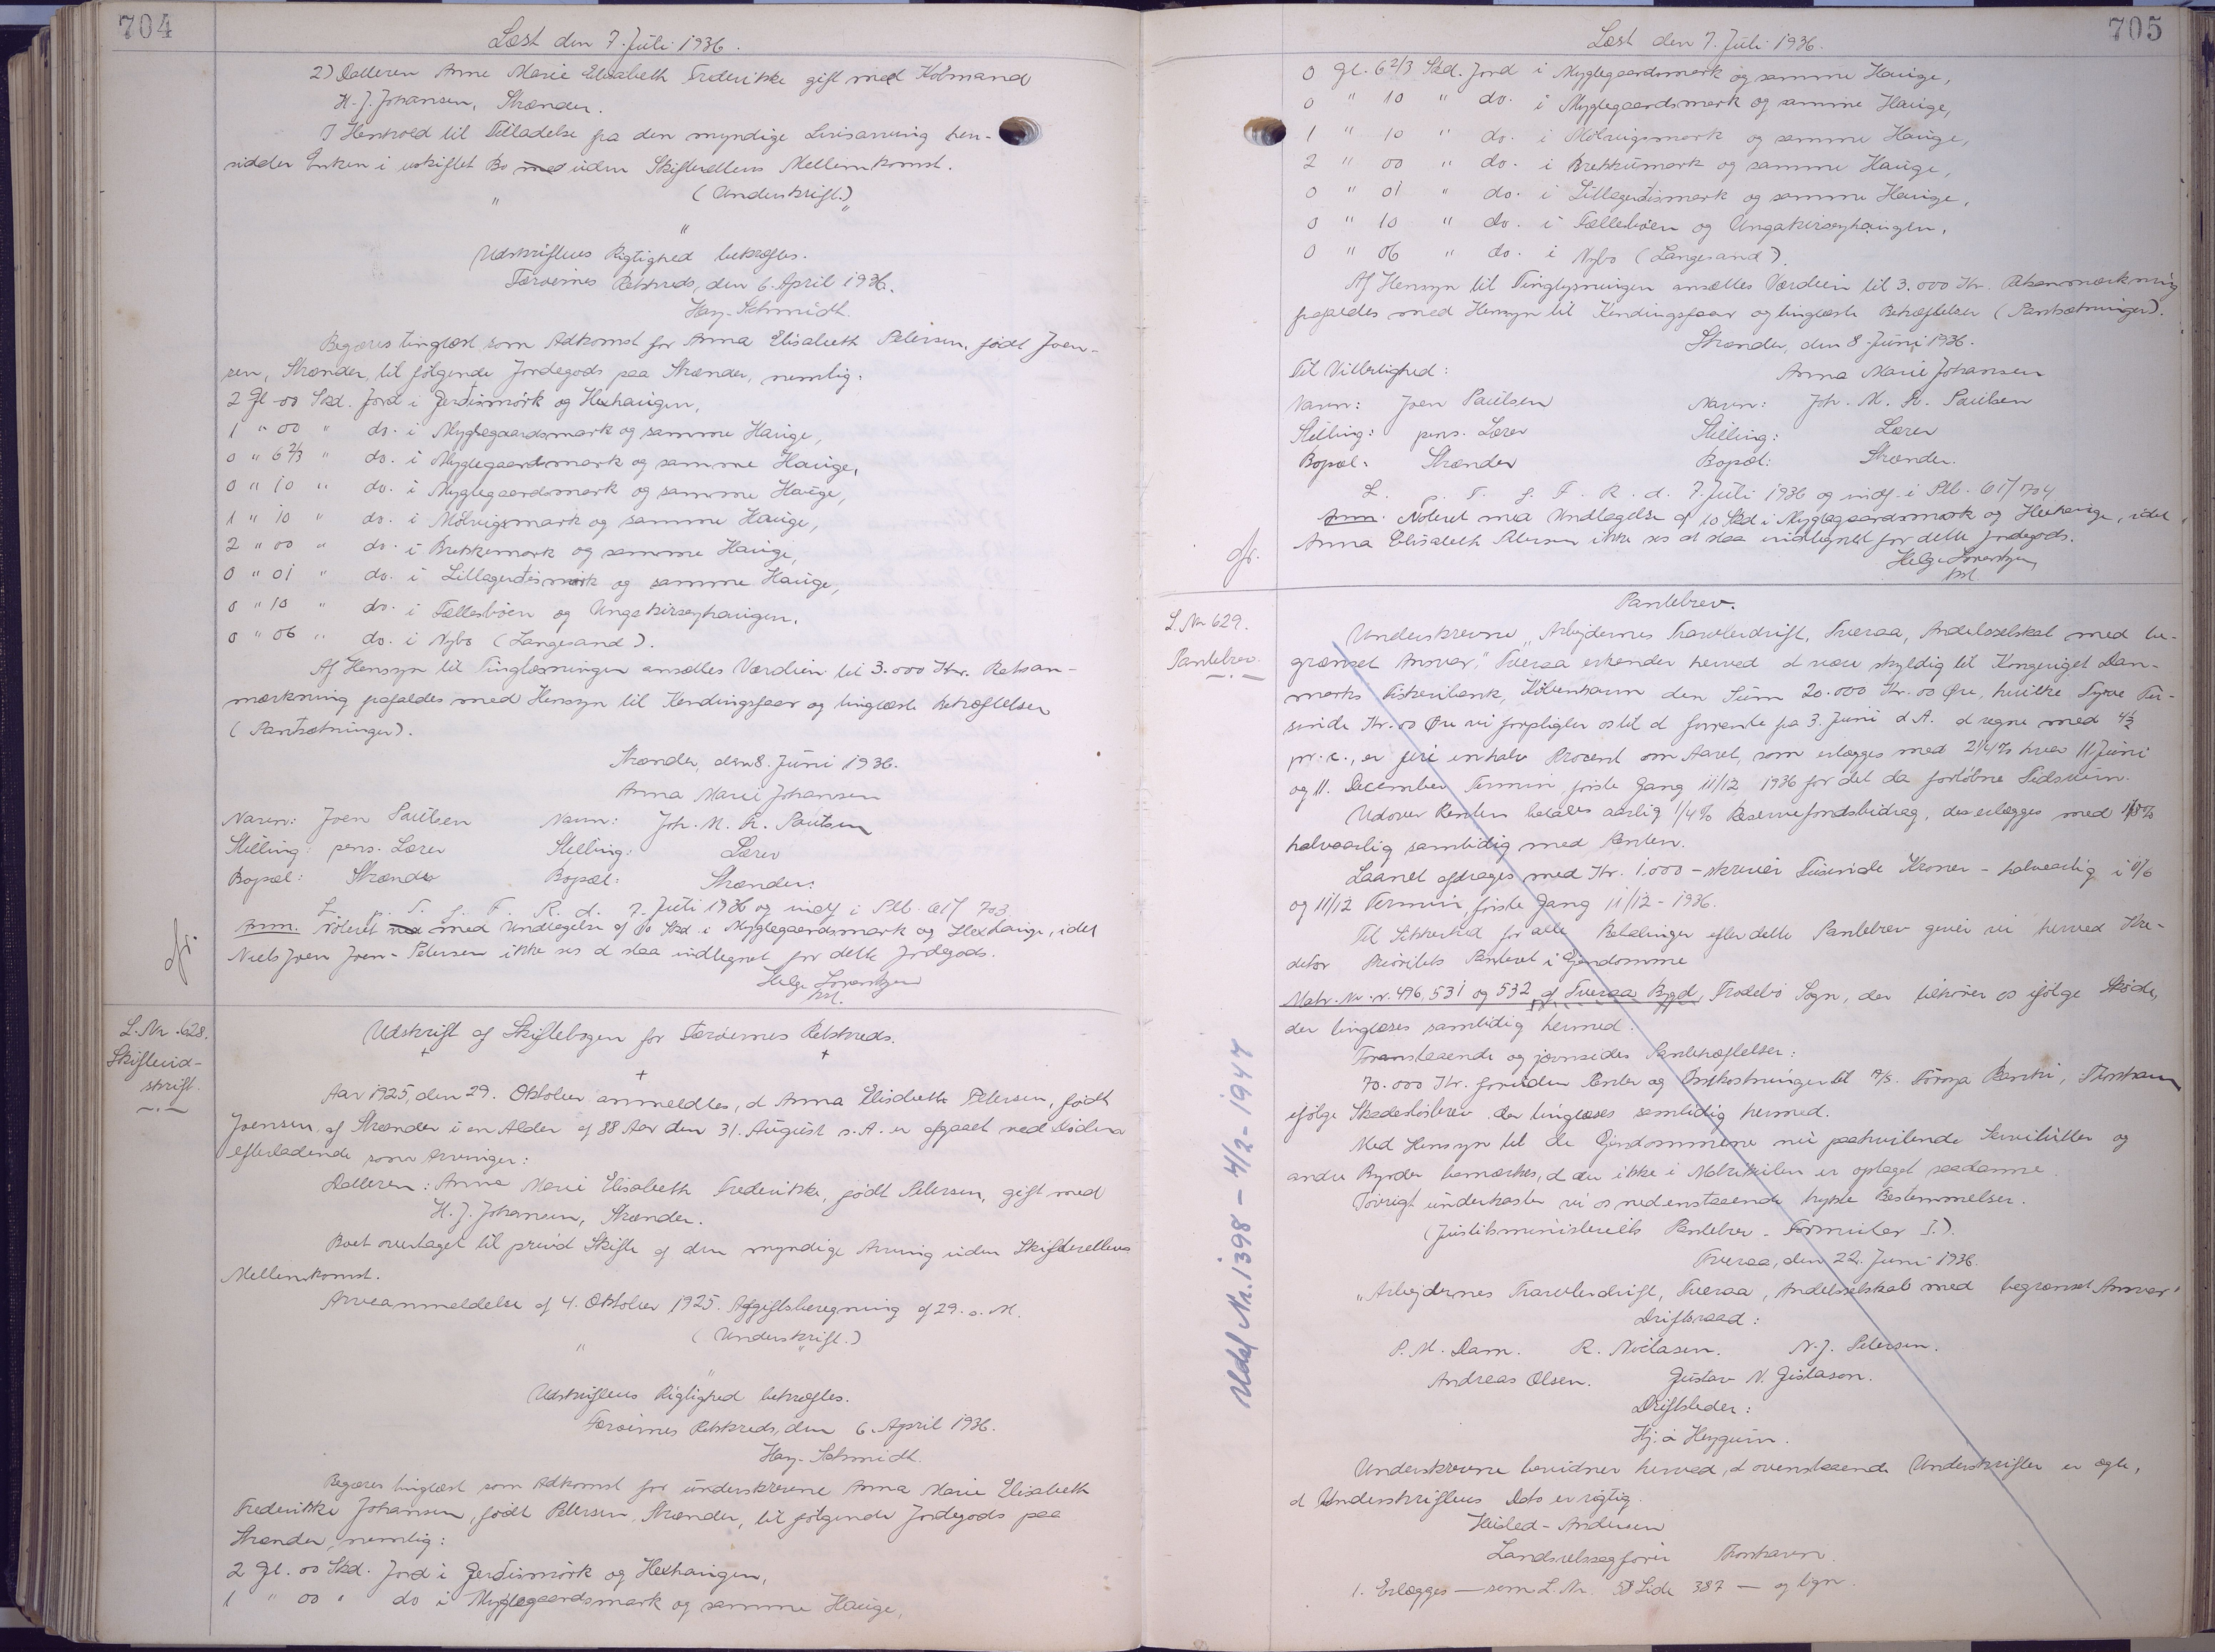 704
Læst den 7. Juli 1936.
2) Datteren Anne Marie Elisabeth Frederikke gift med Købmand
H. J. Johansen, Strænder.
I Henhold til Tilladelse fra den myndige Livsarving hen-
sidder Enken i uskiftet Bo med uden Skifterettens Mellemkomst.
(Underskrift.)
Udskriftens Rigtighed bekræftes.
Færøernes Retskreds, den 6. April 1936.
Hay-Schmidt.
Begæres tinglæst som Adkomst for Anna Elisabeth Petersen, født Joen-
sen, Strænder, til følgende Jordegods paa Strænder, nemlig:
2 Gl 00 Skd. Jord i Gerdismørk og Hexhaugen,
1 " 00 " do. i Myglegaardsmark og samme Hauge,
0 " 6 2/3 " do. i Myglegaardsmark og samme Hauge,
0 " 10 " do. i Myglegaardsmark og samme Hauge,
1 " 10 " do. i Mølvigsmark og samme Hauge,
2 " 00 " do. i Brekkumørk og samme Hauge,
0 " 01 " do. i Lillagerdismørk og samme Hauge,
0 " 10 " do. i Fællesbøen og Ungakirseyhaugen,
0 " 06 " do. i Nybo (Langesand).
Af Hensyn til Tinglæsningen ansættes Værdien til 3.000 Kr. Retsan-
mærkning frafaldes med Hensyn til Kendingsfaar og tinglæste Behæftelser
(Pantsætninger).
Strænder, den 8. Juni 1936.
Anna Marie Johansen
Navn: Joen Paulsen Navn: Joh. M. Fr. Poulsen
Stilling: pens. Lærer Stilling: Lærer
Bopæl: Strænder Bopæl: Strænder.
L. p. T. f. F. R. d. 7. Juli 1936 og indf. i Plb. 61/703
Anm. Noteret med med Undtagelse af 10 Skd. i Myglegaardsmark og Hexhauge, idet
Niels Joen Joen-Petersen ikke ses at staa indtegnet for dette Jordegods.
Helge Lorentzen
kst.
cfr.
L. Nr. 628.
Skifteud-
skrift.
Udskrift af Skiftebogen for Færøernes Retskreds.
Aar 1925, den 29. Oktober anmeldtes, at Anna Elisabeth Petersen, født
Joensen, af Strænder i en Alder af 88 Aar den 31. August s. A. er afgaaet ved Døden
efterladende som Arvinger:
Datteren: Anna Marie Elisabeth Frederikke, født Petersen, gift med
H. J. Johansen, Strænder.
Boet overtaget til privat Skifte af den myndige Arving uden Skifterettens
Mellemkomst.
Arveanmeldelse af 4. Oktober 1925. Afgiftsberegning af 29. s. M.
(Underskrift.)
Udskriftens Rigtighed bekræftes.
Færøernes Retskreds, den 6. April 1936.
Hay-Schmidt.
Begæres tinglæst som Adkomst for underskrevne Anna Marie Elisabeth
Frederikke Johansen, født Petersen, Strænder, til følgende Jordegods paa
Strænder, nemlig:
2 Gl. 00 Skd. Jord i Gerdismørk og Hexhaugen,
1 " 00 " do i Myglegaardsmark og samme Hauge,
705
Læst den 7. Juli 1936.
0 Gl. 6 2/3 Skd. Jord i Myglegaardsmark og samme Hauge,
0 " 10 " do. i Myglegaardsmark og samme Hauge,
1 " 10 " do. i Mølvigsmørk og samme Hauge,
2 " 00 " do. i Brekkumørk og samme Hauge,
0 " 01 " do. i Lillagerdismørk og samme Hauge,
0 " 10 " do. i Fællesbøen og Ungakirseyhaugen,
0 " 06 " do. i Nybo (Langesand).
Af Hensyn til Tinglysningen ansættes Værdien til 3.000 Kr. Retsanmærkning
frafaldes med Hensyn til Kendingsfaar og tinglæste Behæftelser (Pantsætninger).
Strænder, den 8. Juni 1936.
Til Vitterlighed: Anna Marie Johansen
Navn: Joen Paulsen Navn: Joh. M. Fr. Poulsen
Stilling: pens. Lærer Stilling: Lærer
Bopæl: Strænder Bopæl: Strænder.
L. p. T. f. F. R. d. 7. Juli 1936 og indf. i Plb. 61/704
Anm. Noteret med Undtagelse af 10 Skd i Myglegaardsmørk og Hexhauge, idet
Anna Elisabeth Petersen ikke ses at staa indtegnet for dette Jordegods.
Helge Lorentzen
kst
cfr.
L. Nr 629.
Pantebrev.
Pantebrev.
Underskrevne "Arbejdernes Trawlerdrift, Tveraa, Andelsselskab med be-
grænset Ansvar", Tveraa erkender herved at være skyldig til Kongeriget Dan-
marks Fiskeribank, København den Sum 20.000 Kr. 00 Øre, hvilke Tyve Tu-
sinde Kr. 00 Øre vi forpligter os til at forrente fra 3. Juni d. A. at regne med 4½
pr. c., er fire en halv Procent om Aaret, som erlægges med 2 1/4% hver 11. Juni
og 11. December Termin, første Gang 11/12 1936 for det da forløbne Tidsrum.
Udover Renten betales aarlig 1/4% Reservefondsbidrag, der erlægges med 1/8%
halvaarlig samtidig med Renten.
Laanet afdrages med Kr. 1.000 - skriver Tusinde Kroner - halvaarlig i 11/6
og 11/12 Termin, første Gang 11/12 - 1936.
Til Sikkerhed for alle Betalinger efter dette Pantebrev giver vi herved Kre-
ditor Prioritets Panteret i Ejendomme
Matr. Nr. 496, 531 og 532 af Tveraa Bygd, Frodebø Sogn, der tilhører os ifølge Skøde,
der tinglæses samtidig hermed.
Foranstaaende og jævnsides Pantehæftelser:
70.000 Kr. foruden Renter og Omkostninger til A/S. Føroya Banki, Thorshavn
ifølge Skadesløsbrev der tinglæses samtidig hermed.
Med Hensyn til de Ejendommene nu paahvilende Servitutter og
andre Byrder bemærkes, at der ikke i Matrikulen er optaget saadanne.
Iøvrigt underkaster vi os nedenstaaende trykte Bestemmelser.
(Justitsministeriets Pantebrev - Formular I.).
Tveraa, den 22. Juni 1936.
"Arbejdernes Trawlerdrift, Tveraa, Andelsselskab med begrænset Ansvar"
Driftsraad:
P. M. Dam. R. Niclasen. N. J. Petersen.
Andreas Olsen. Gustav N. Gislason.
Driftsleder:
Hj. á Heygum.
Underskrevne bevidner herved, at ovenstaaende Underskrifter er ægte,
at Underskriftens Dato er rigtig.
Heisled-Andersen
Landsretssagfører Thorshavn.
1. Erlægges — som L. Nr. 58 Side 387 — og lign.
Udsl Nr. 1398 - 4/2 - 1944